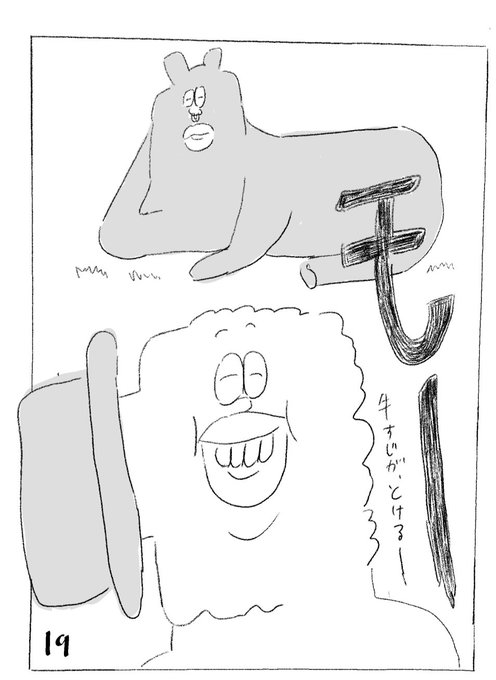 モー
牛すじが、とけるー
19